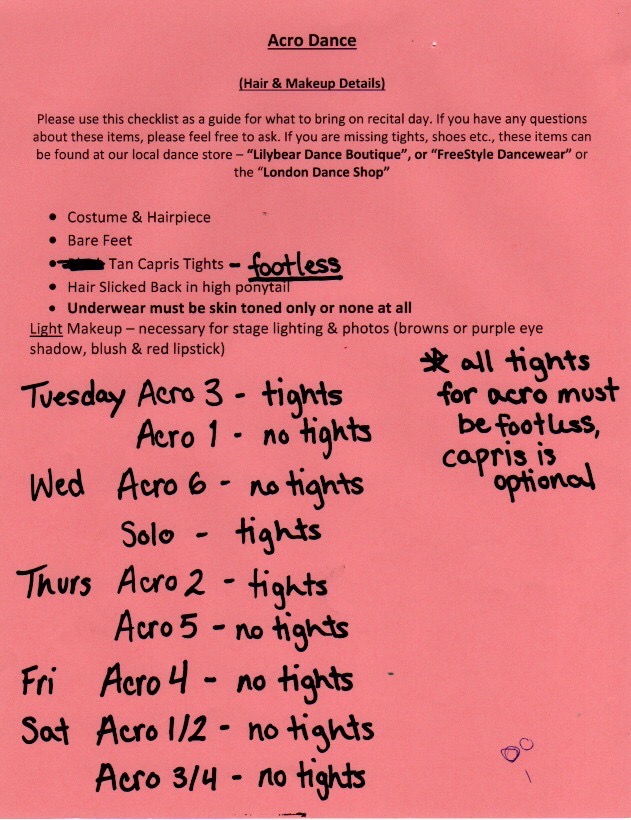 Acro Dance
(Hair & Makeup Details)
Please use this checklist as a guide for what to bring on recital day. If you have any questions
about these items, please feel free to ask. If you are missing tights, shoes etc., these items can
be found at our local dance store – “Lilybear Dance Boutique”, or “FreeStyle Dancewear” or
the “London Dance Shop”
• Costume & Hairpiece
• Bare Feet
• Tan Capris Tights – footless
• Hair Slicked Back in high ponytail
• Underwear must be skin toned only or none at all
Light Makeup – necessary for stage lighting & photos (browns or purple eye
shadow, blush & red lipstick)
* all tights
for acro must
be footless,
capris is
optional
Tuesday Acro 3 - tights
Acro 1 - no tights
Wed Acro 6 - no tights
Solo - tights
Thurs Acro 2 - tights
Acro 5 - no tights
Fri Acro 4 - no tights
Sat Acro 1/2 - no tights
Acro 3/4 - no tights